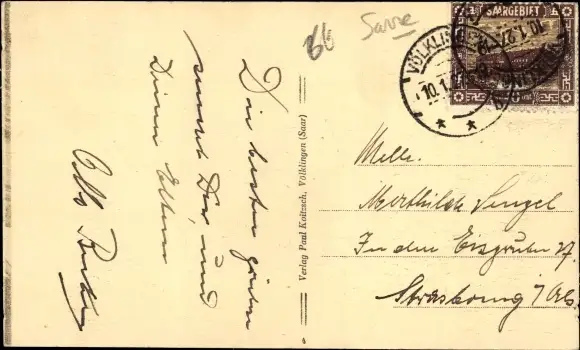 66 Sarre
SAARGEBIET
VÖLKLINGEN
10.1.27
Die besten Grüße
sendet Dir, und
Deinen Eltern
Otto
Verlag Paul Koitzsch, Völklingen (Saar)
Melle.
Marthilde Sengel
In den Eisgruben 27.
Strasbourg / Els.